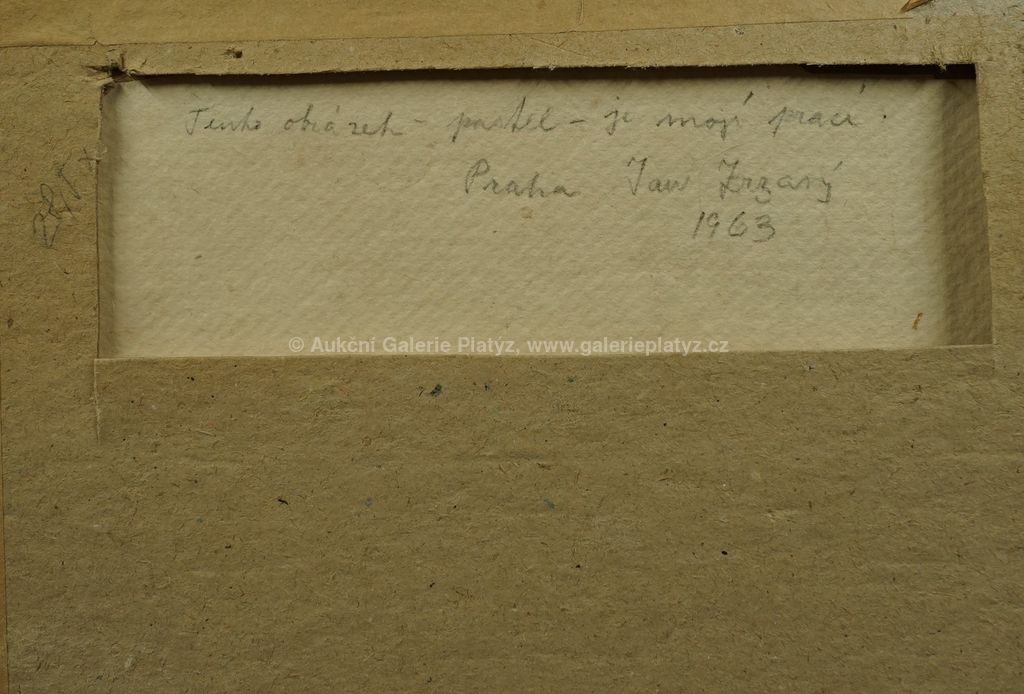 Tento obrázek - pastel - je mojí prací.
Praha Jan Zrzavý
1963
© Aukční Galerie Platýz, www.galerieplatyz.cz